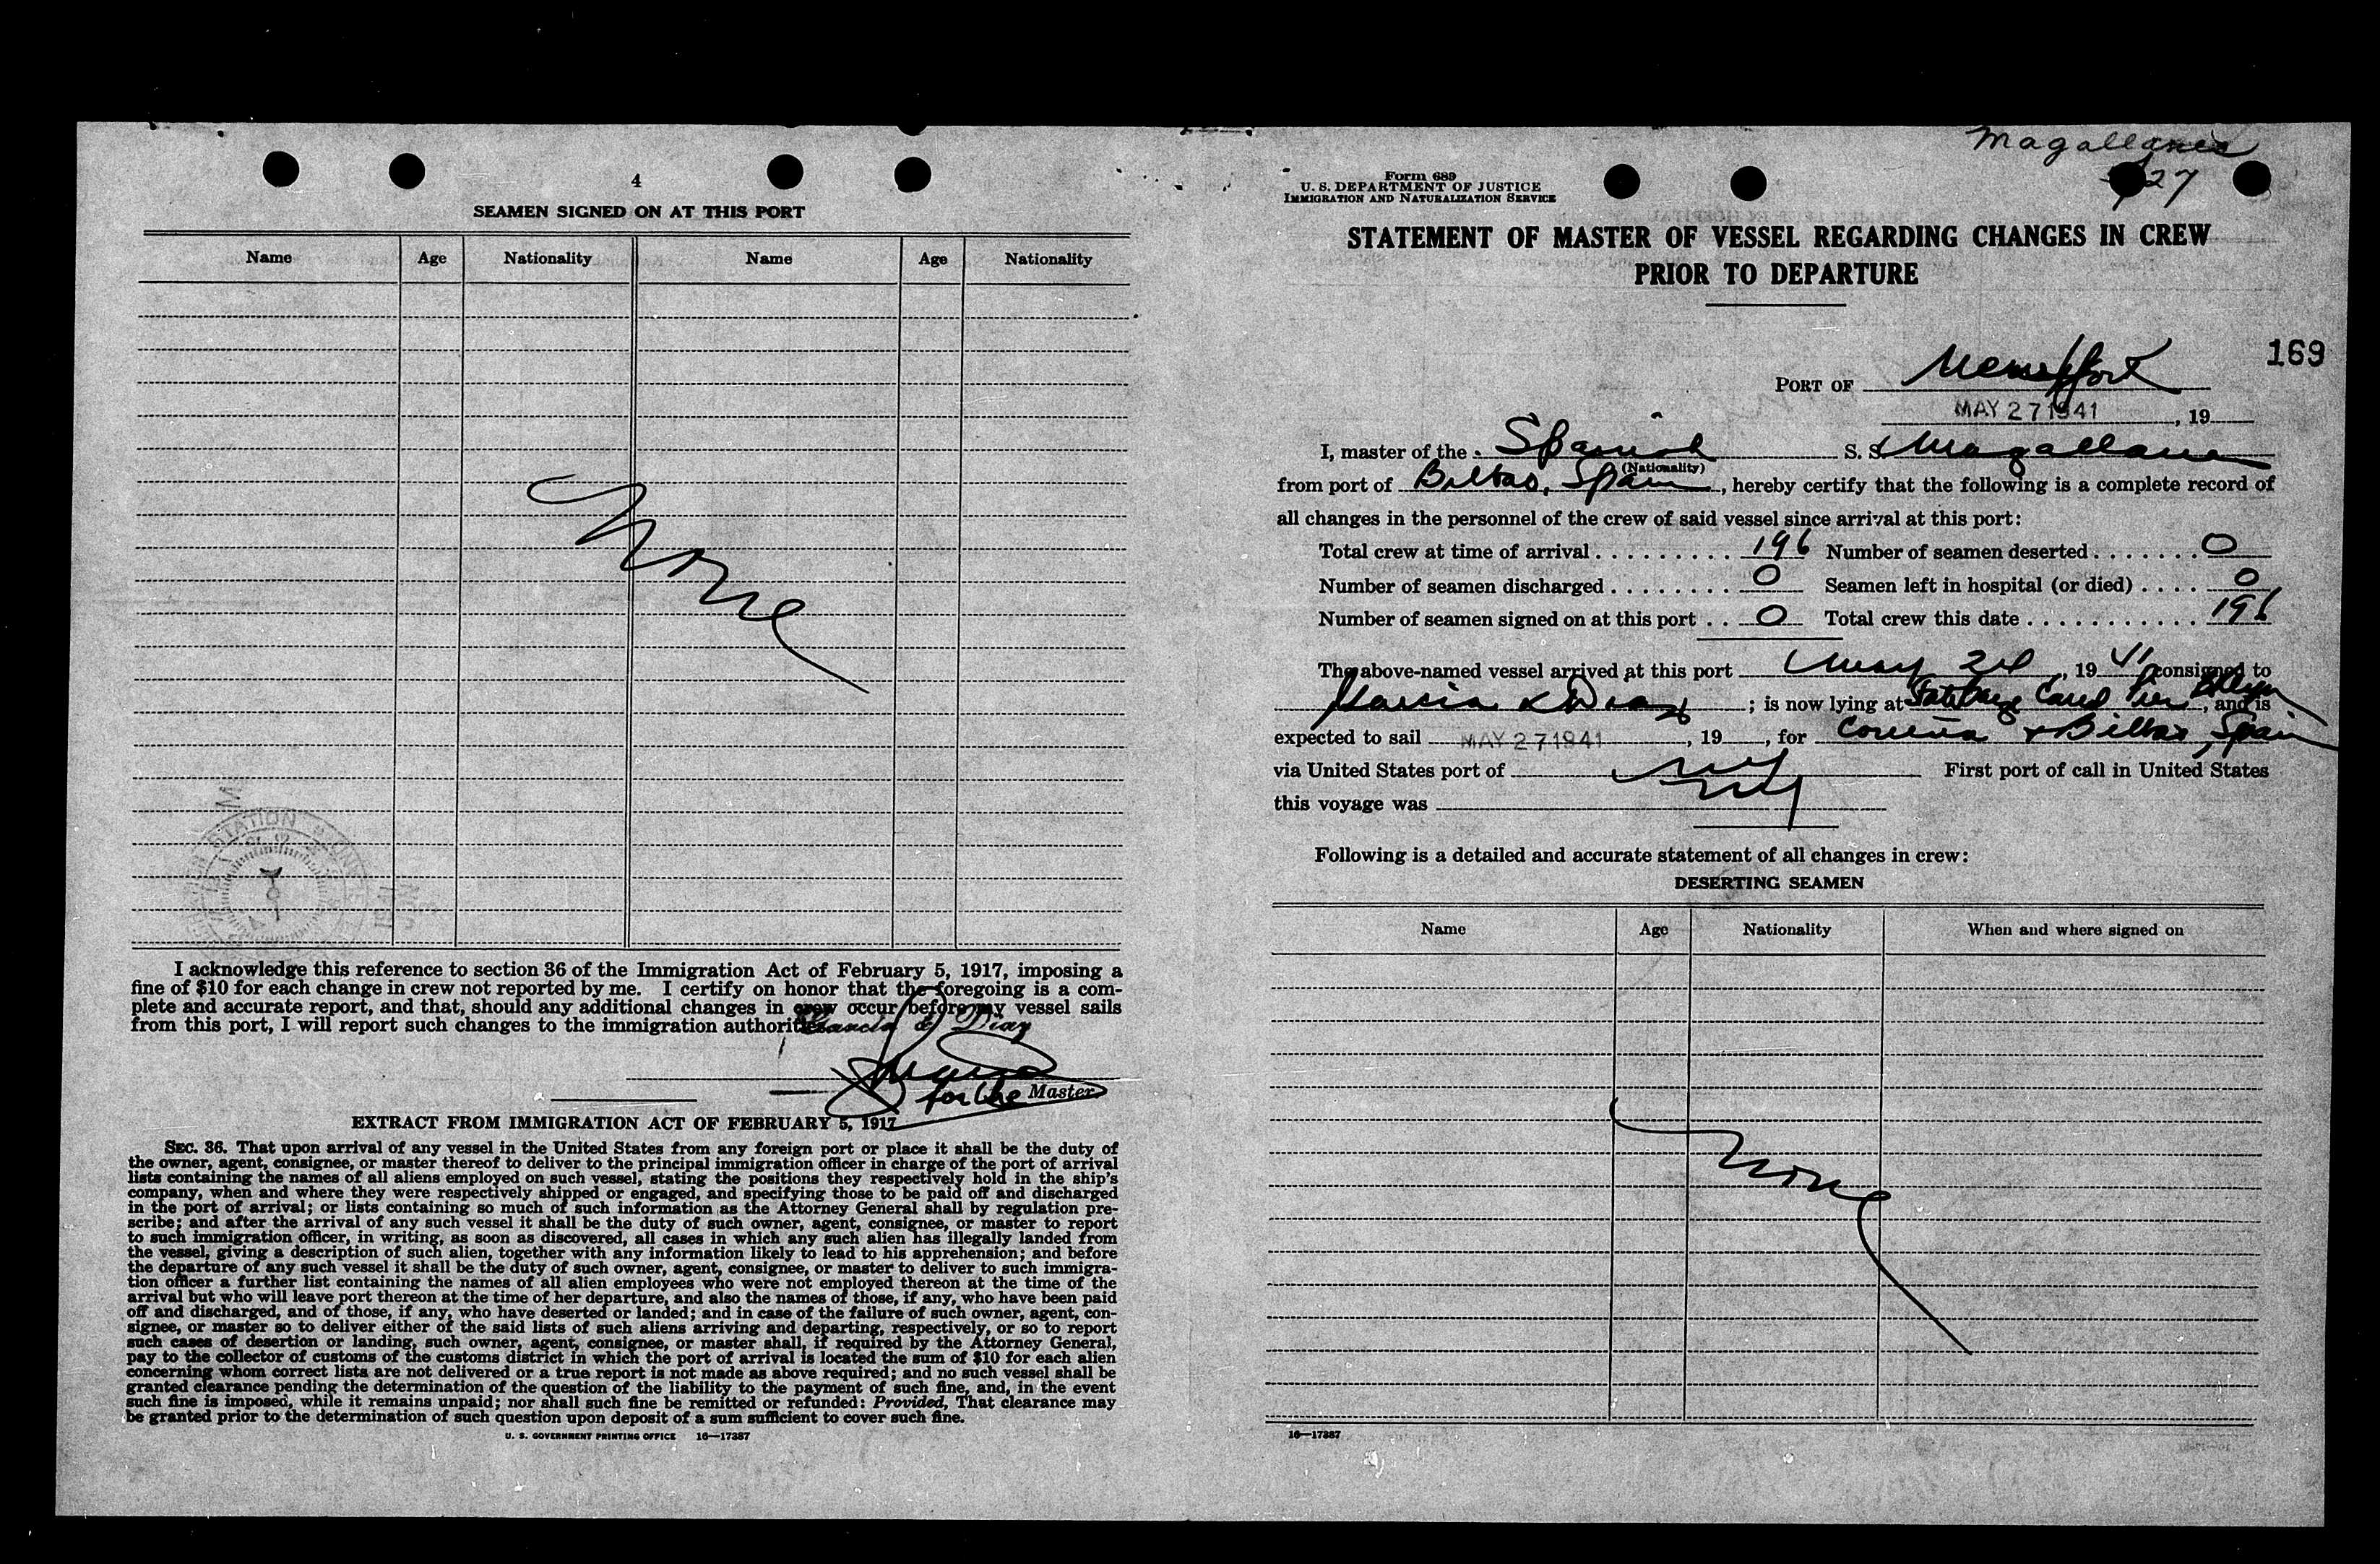 4
SEAMEN SIGNED ON AT THIS PORT
Name Age Nationality Name Age Nationality
None
I acknowledge this reference to section 36 of the Immigration Act of February 5, 1917, imposing a
fine of $10 for each change in crew not reported by me. I certify on honor that the foregoing is a com-
plete and accurate report, and that, should any additional changes in crew occur before my vessel sails
from this port, I will report such changes to the immigration authorities.
Garcia & Diaz
for the Master
EXTRACT FROM IMMIGRATION ACT OF FEBRUARY 5, 1917
SEC. 36. That upon arrival of any vessel in the United States from any foreign port or place it shall be the duty of
the owner, agent, consignee, or master thereof to deliver to the principal immigration officer in charge of the port of arrival
lists containing the names of all aliens employed on such vessel, stating the positions they respectively hold in the ship's
company, when and where they were respectively shipped or engaged, and specifying those to be paid off and discharged
in the port of arrival; or lists containing so much of such information as the Attorney General shall by regulation pre-
scribe; and after the arrival of any such vessel it shall be the duty of such owner, agent, consignee, or master to report
to such immigration officer, in writing, as soon as discovered, all cases in which any such alien has illegally landed from
the vessel, giving a description of such alien, together with any information likely to lead to his apprehension; and before
the departure of any such vessel it shall be the duty of such owner, agent, consignee, or master to deliver to such immigra-
tion officer a further list containing the names of all alien employees who were not employed thereon at the time of the
arrival but who will leave port thereon at the time of her departure, and also the names of those, if any, who have been paid
off and discharged, and of those, if any, who have deserted or landed; and in case of the failure of such owner, agent, con-
signee, or master so to deliver either of the said lists of such aliens arriving and departing, respectively, or so to report
such cases of desertion or landing, such owner, agent, consignee, or master shall, if required by the Attorney General,
pay to the collector of customs of the customs district in which the port of arrival is located the sum of $10 for each alien
concerning whom correct lists are not delivered or a true report is not made as above required; and no such vessel shall be
granted clearance pending the determination of the question of the liability to the payment of such fine, and, in the event
such fine is imposed, while it remains unpaid; nor shall such fine be remitted or refunded: Provided, That clearance may
be granted prior to the determination of such question upon deposit of a sum sufficient to cover such fine.
U. S. GOVERNMENT PRINTING OFFICE 16—17387
Magallanes
27
Form 689
U. S. DEPARTMENT OF JUSTICE
IMMIGRATION AND NATURALIZATION SERVICE
STATEMENT OF MASTER OF VESSEL REGARDING CHANGES IN CREW
PRIOR TO DEPARTURE
169
PORT OF New York
MAY 27 1941, 19
I, master of the Spanish S. S. Magallanes
(Nationality)
from port of Bilbao, Spain, hereby certify that the following is a complete record of
all changes in the personnel of the crew of said vessel since arrival at this port:
Total crew at time of arrival 196 Number of seamen deserted 0
Number of seamen discharged 0 Seamen left in hospital (or died) 0
Number of seamen signed on at this port 0 Total crew this date 196
The above-named vessel arrived at this port May 24, 19 41 consigned to
Garcia & Diaz; is now lying at Pier Bklyn, and is
expected to sail MAY 27 1941, 19, for Coruña & Bilbao, Spain
via United States port of NY First port of call in United States
this voyage was NY
Following is a detailed and accurate statement of all changes in crew:
DESERTING SEAMEN
Name Age Nationality When and where signed on
None
16—17387